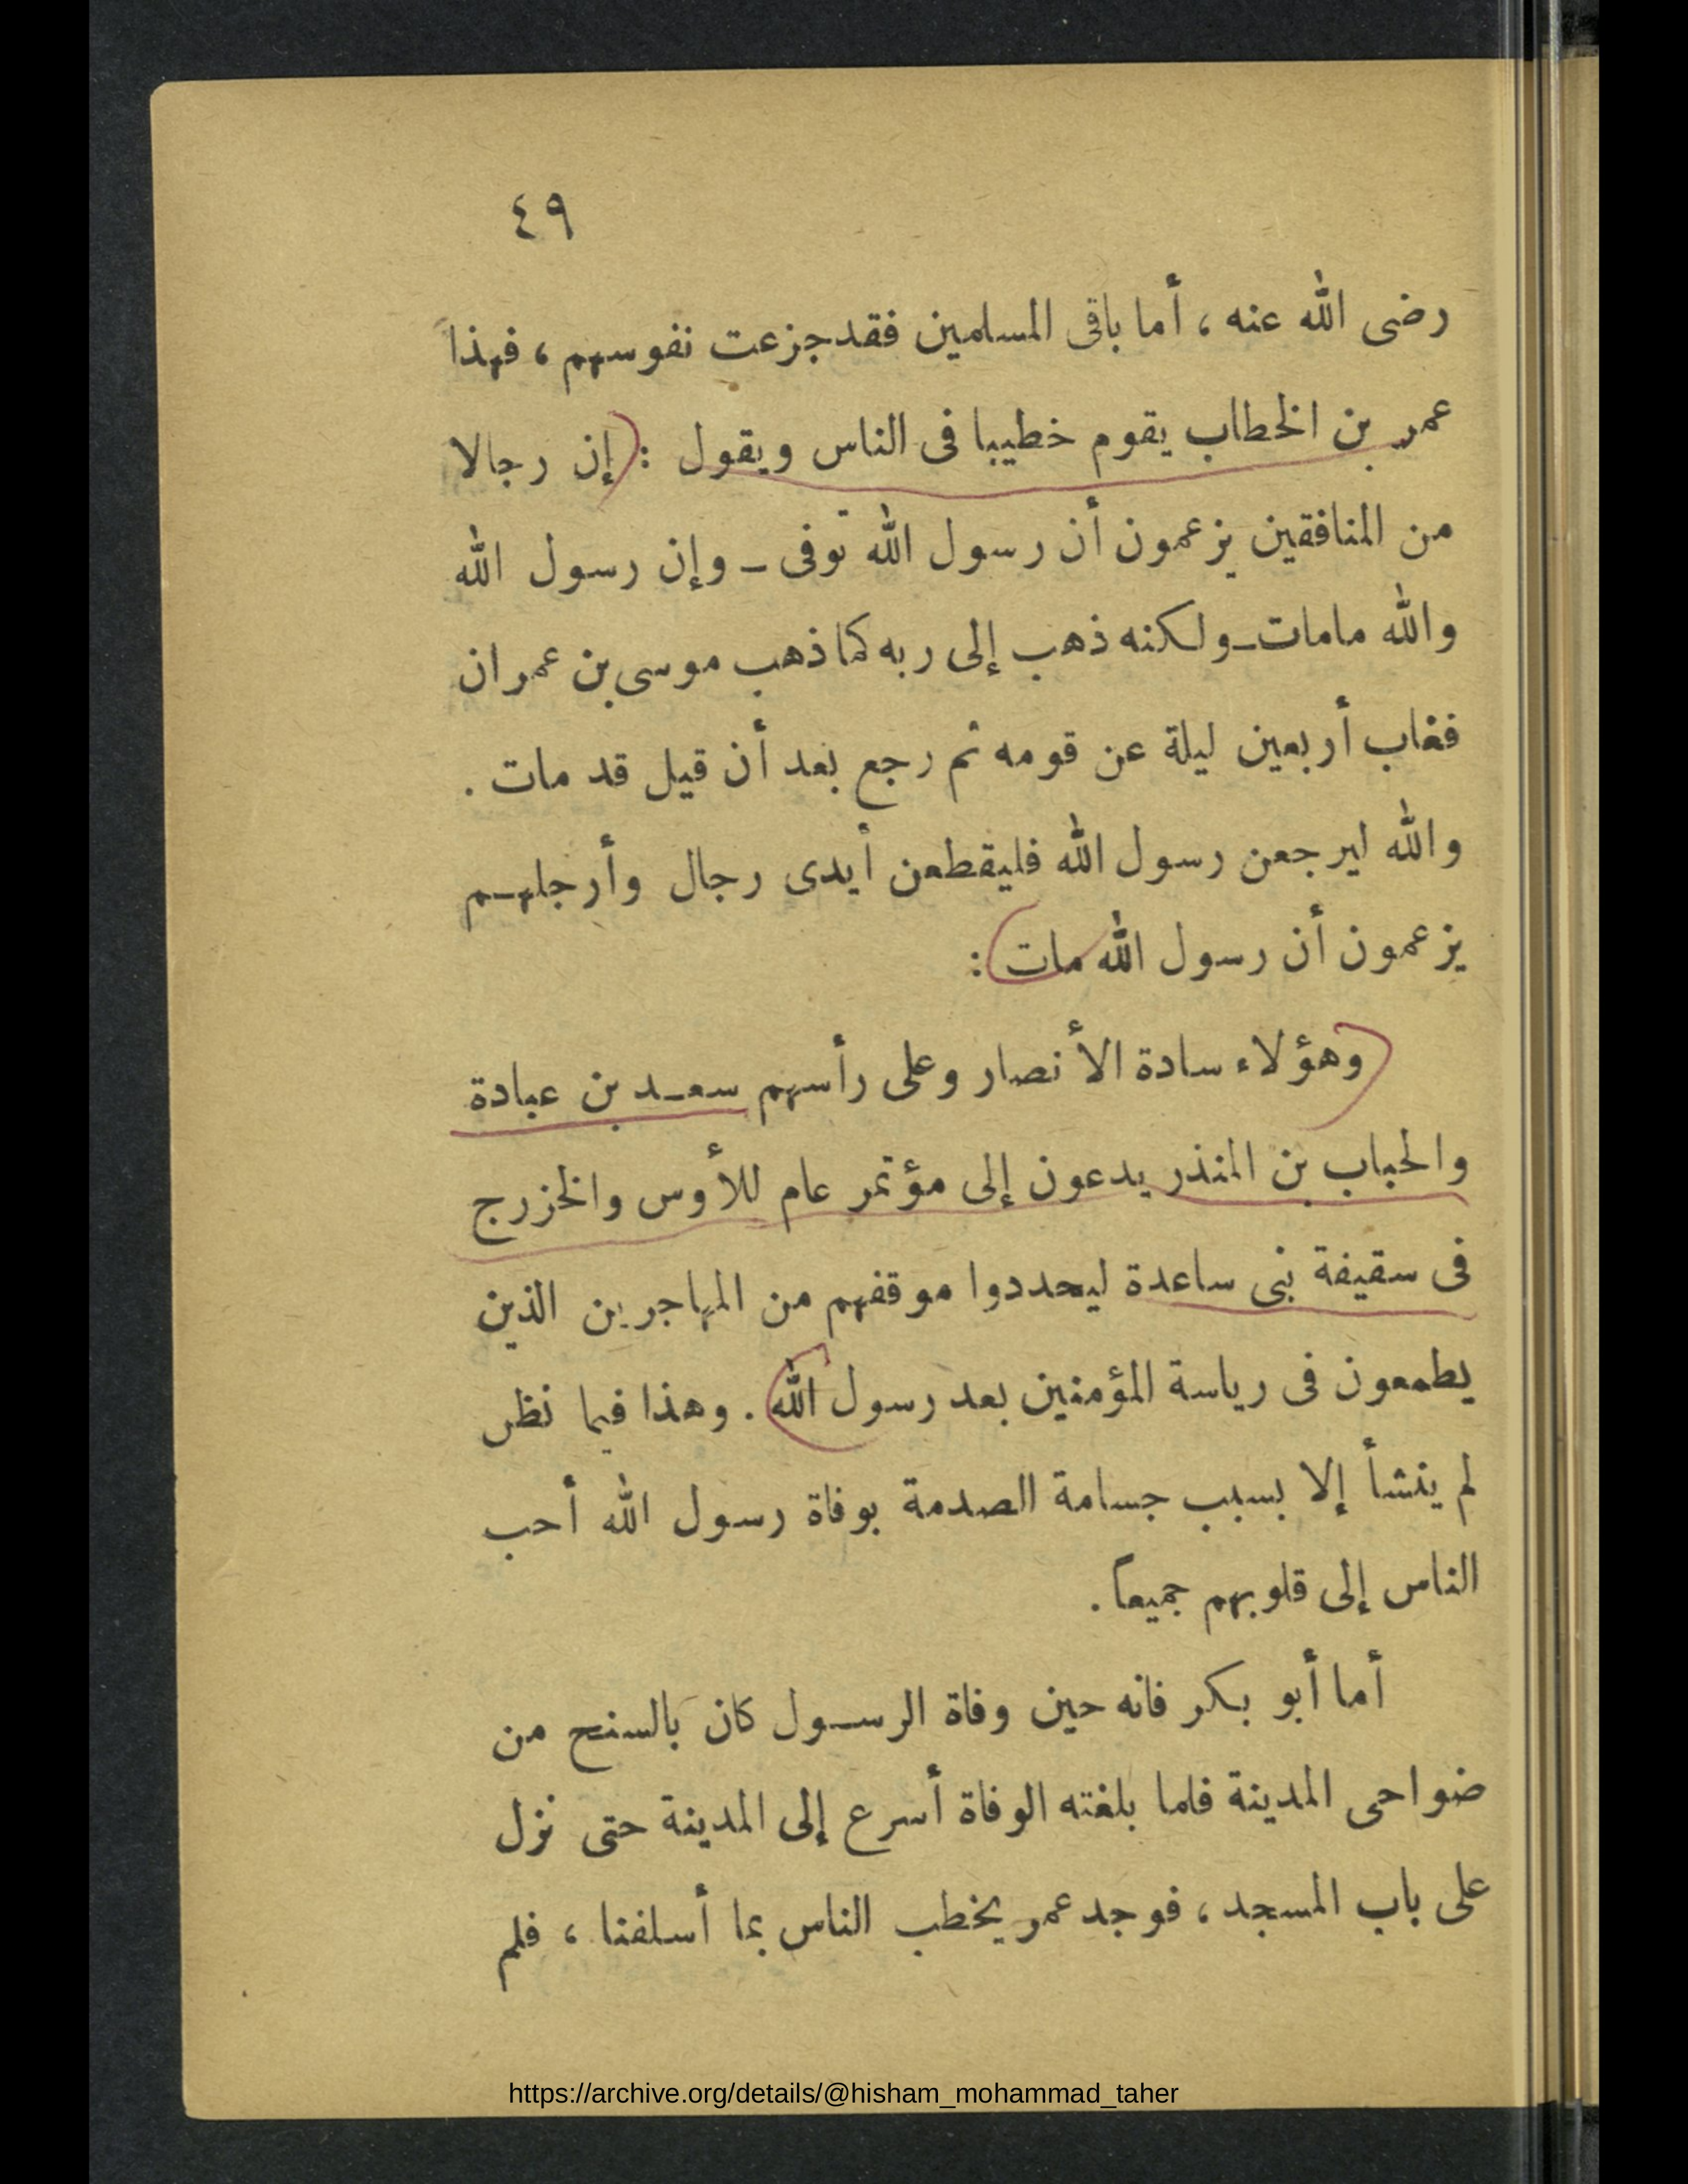 ٤٩
رضى الله عنه ، أما باقى المسلمين فقد جزعت نفوسهم ، فهذا
عمر بن الخطاب يقوم خطيبا فى الناس ويقول : إن رجالا
من المنافقين يزعمون أن رسول الله توفى ــ وإن رسول الله
والله مامات ــ ولكنه ذهب إلى ربه كما ذهب موسى بن عمران
فغاب أربعين ليلة عن قومه ثم رجع بعد أن قيل قد مات .
والله ليرجعن رسول الله فليقطعن أيدى رجال وأرجلهم
يزعمون أن رسول الله مات :
وهؤلاء سادة الأنصار وعلى رأسهم سعد بن عبادة
والحباب بن المنذر يدعون إلى مؤتمر عام للأوس والخزرج
فى سقيفة بنى ساعدة ليحددوا موقفهم من المهاجرين الذين
يطمعون فى رياسة المؤمنين بعد رسول الله . وهذا فيما نظن
لم ينشأ إلا بسبب جسامة الصدمة بوفاة رسول الله أحب
الناس إلى قلوبهم جميعاً .
أما أبو بكر فانه حين وفاة الرسول كان بالسنح من
ضواحى المدينة فلما بلغته الوفاة أسرع إلى المدينة حتى نزل
على باب المسجد ، فوجد عمر يخطب الناس بما أسلفنا ، فلم
https://archive.org/details/@hisham_mohammad_taher